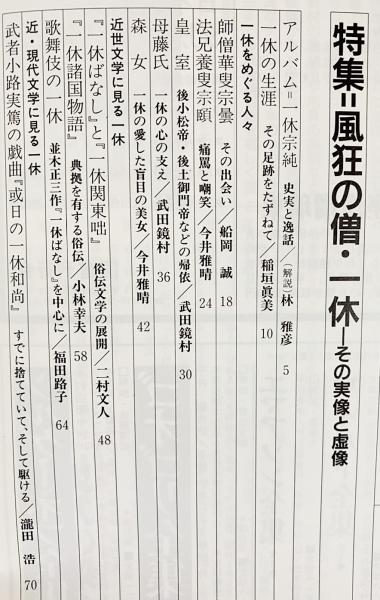 特集=風狂の僧・一休―その実像と虚像
アルバム=一休宗純 史実と逸話 (解説)林 雅彦 5
一休の生涯 その足跡をたずねて/稲垣眞美 10
一休をめぐる人々
師僧華叟宗曇 その出会い/船岡 誠 18
法兄養叟宗頤 痛罵と嘲笑/今井雅晴 24
皇室 後小松帝・後土御門帝などの帰依/武田鏡村 30
母藤氏 一休の心の支え/武田鏡村 36
森女 一休の愛した盲目の美女/今井雅晴 42
近世文学に見る一休
『一休ばなし』と『一休関東咄』 俗伝文学の展開/二村文人 48
『一休諸国物語』 典拠を有する俗伝/小林幸夫 58
歌舞伎の一休 並木正三作『一休ばなし』を中心に/福田路子 64
近・現代文学に見る一休
武者小路実篤の戯曲『或日の一休和尚』 すでに捨てていて、そして駆ける/瀧田 浩 70